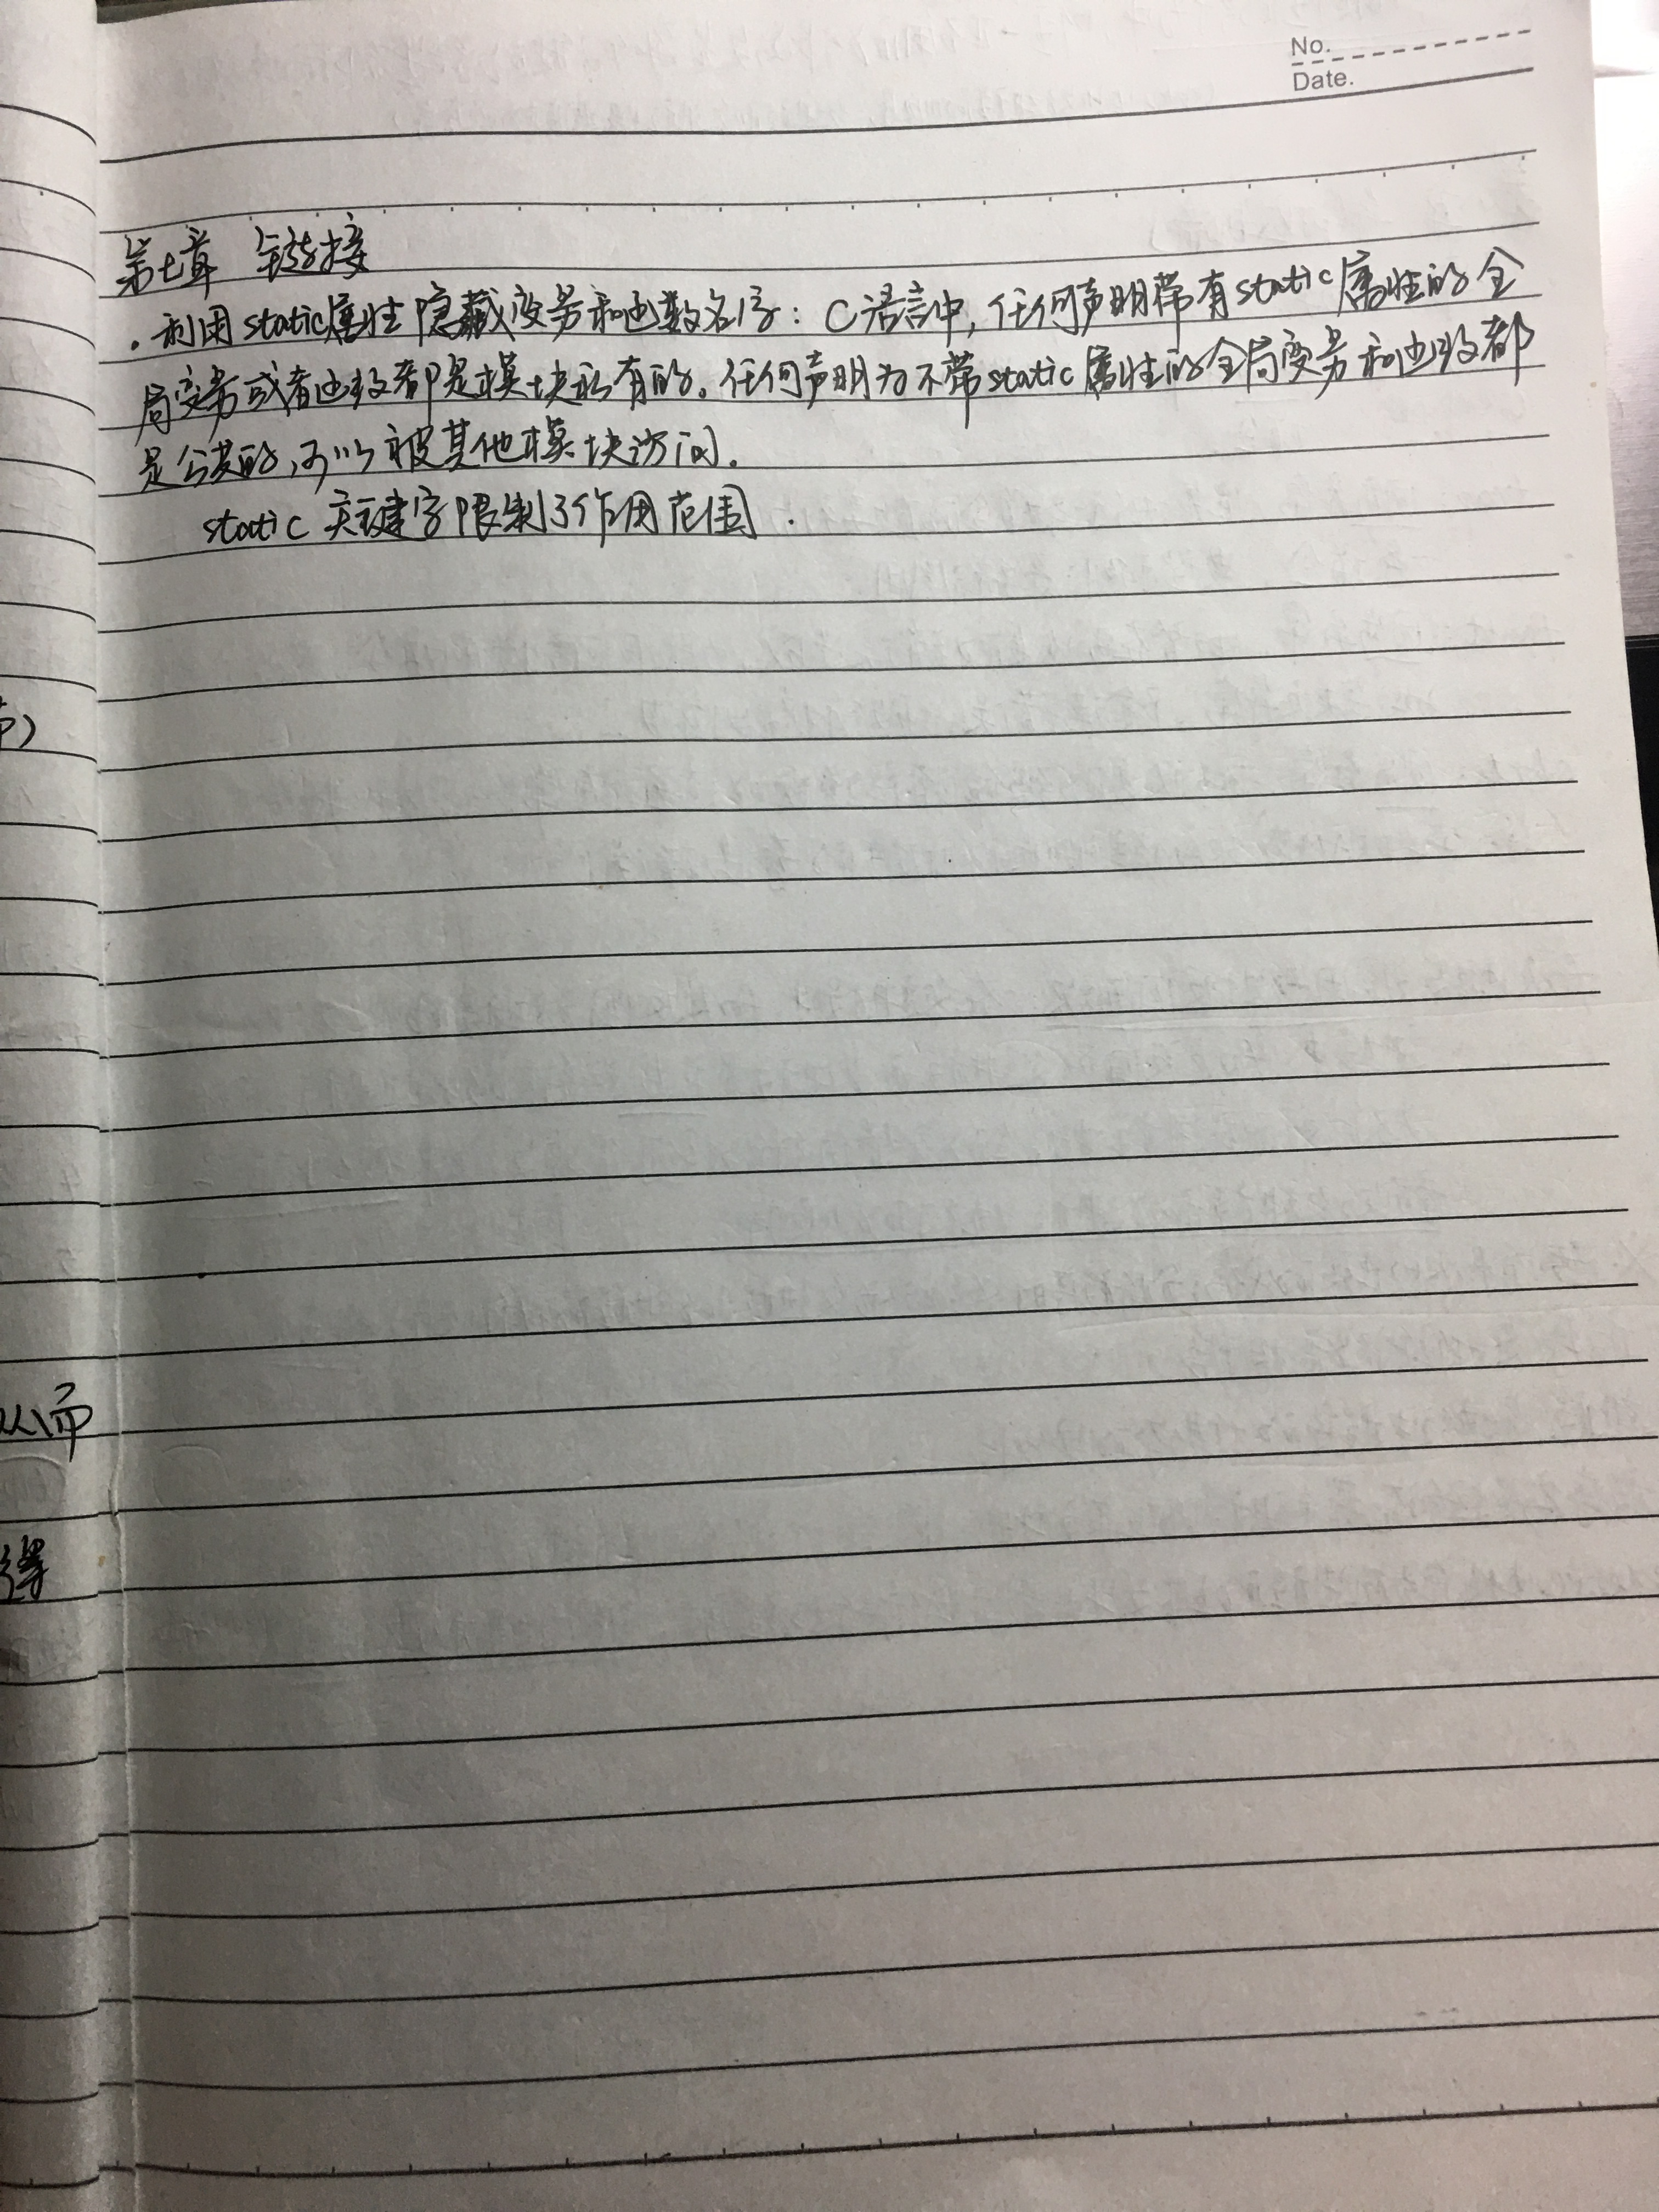 No.
Date.
第七章 链接
. 利用static属性隐藏变量和函数名字：C语言中，任何声明带有static属性的全
局变量或者函数都是模块私有的。任何声明为不带static属性的全局变量和函数都
是公共的，可以被其他模块访问.
static 关键字限制了作用范围.
从而
得